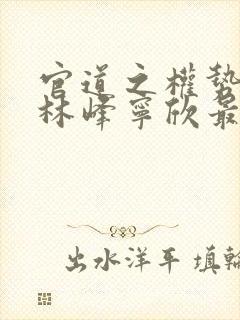 官道之權勢
林峰寧欣最
出水洋平 填輪